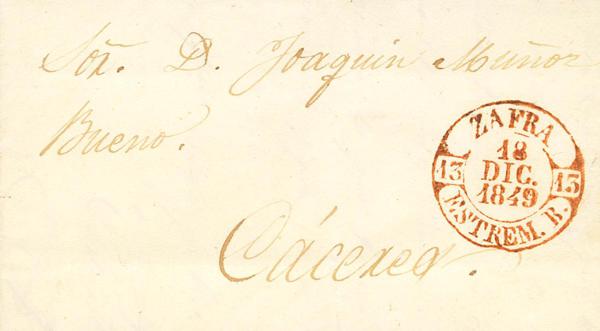 Sor. D. Joaquin Muñoz
Bueno.
Cáceres.
ZAFRA
18
DIC.
1849
13
13
ESTREM. B.